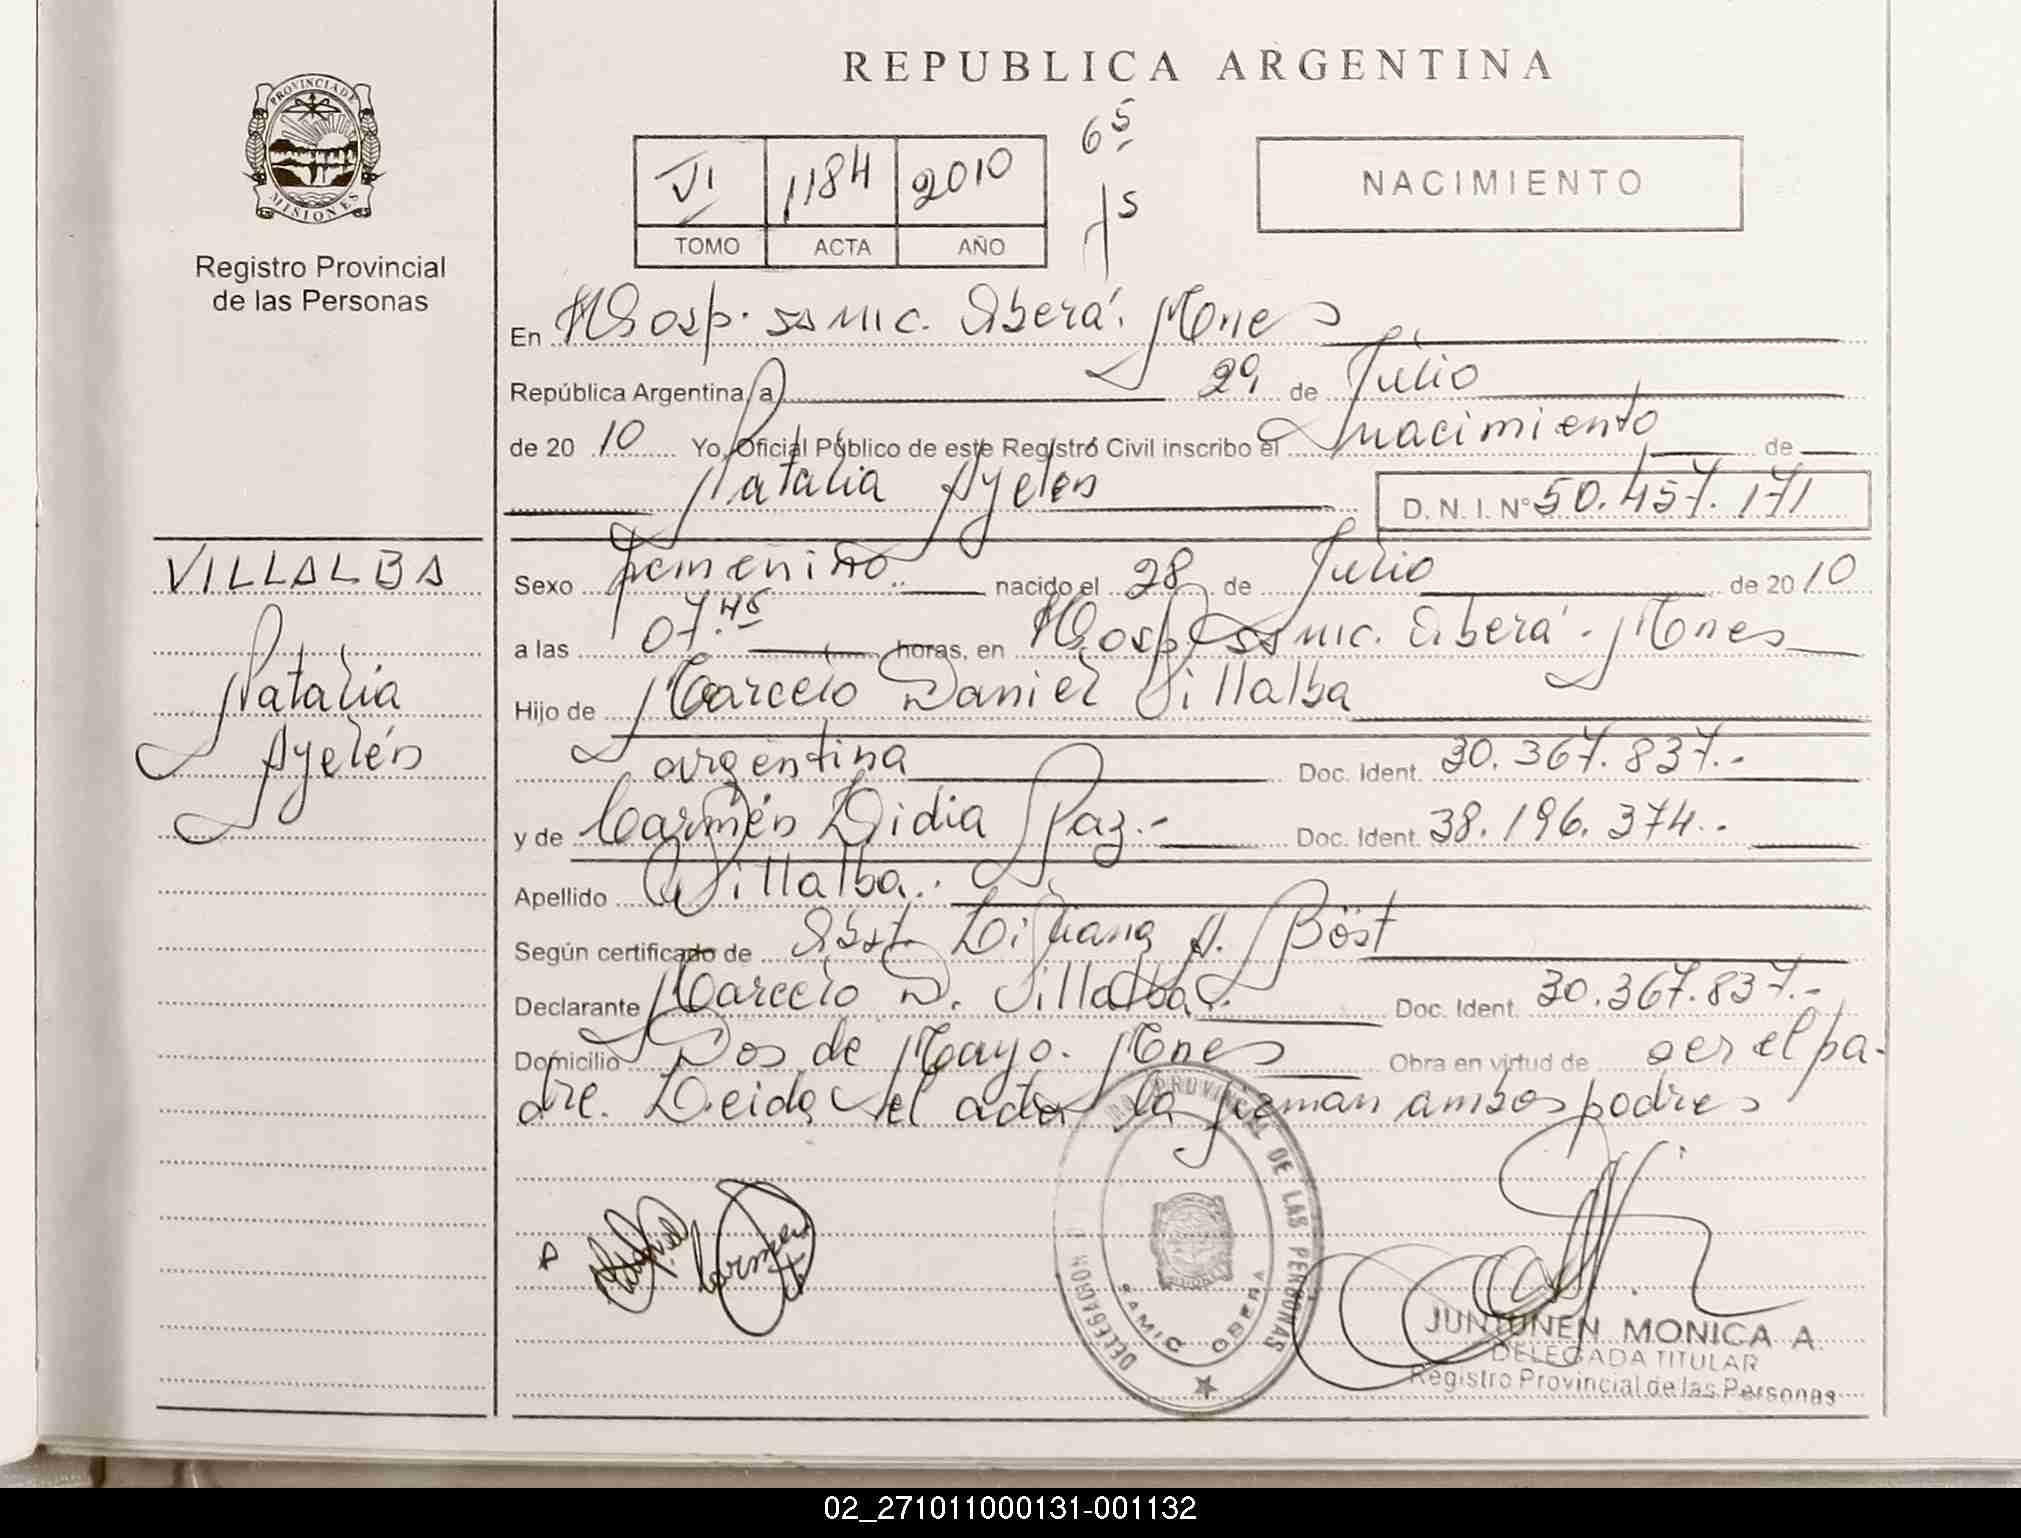 REPUBLICA ARGENTINA
PROVINCIA DE
MISIONES
Registro Provincial
de las Personas
VI 1184 2010
TOMO ACTA AÑO
65
NACIMIENTO
En Hosp. SSMIC. Oberá. Mnes
República Argentina, a 29 de Julio
de 2010 Yo, Oficial Público de este Registro Civil inscribo el nacimiento de
Natalia Ayelén D. N. I. N° 50.457.171
VILLALBA
Natalia
Ayelén
Sexo femenino nacido el 28 de Julio de 2010
a las 07.45 horas, en Hosp. SSMIC. Oberá. Mnes
Hijo de Marcelo Daniel Villalba
argentina Doc. Ident. 30.367.837.-
y de Carmen Lidia Paz.- Doc. Ident. 38.196.374.-
Apellido Villalba.
Según certificado de Obst. Liliana A. Böst
Declarante Marcelo D. Villalba. Doc. Ident. 30.367.837.-
Domicilio Dos de Mayo. Mnes Obra en virtud de ser el pa-
dre. Leida el acta la firman ambos padres
PROVINCIAL DE LAS PERSONAS
DELEGACION
SAMIC OBERA
Carmen
JUNTUNEN MONICA A.
DELEGADA TITULAR
Registro Provincial de las Personas
02_271011000131-001132